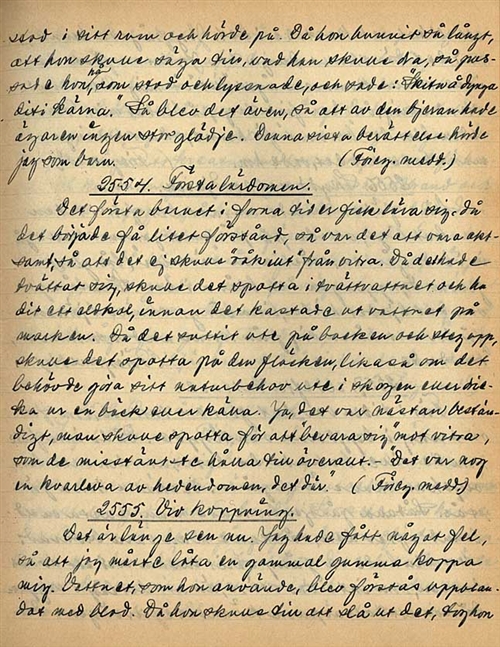 stod i sitt rum och hörde på. Då hon hunnit så långt,
att hon skulle säga till, vad han skulle dra, så pus-
sade hon, nå, som stod och lyssnade, och sade: "Skit
dit i kärna." Så blev det även, så att av den bjäran hade
ägaren ingen stor glädje. Denna sista berättelse hörde
jag som barn. (Föreg. medd.)
2554. Första lärdomen.
Det första barnet i forna tider fick lära sig, då
det började få litet förstånd, så var det att vara akt-
samt, så att det ej skulle råka ut från vitra. Då det hade
tvättat sig, skulle det spotta i tvättvattnet och ha
dit ett eldkol, innan det kastade ut vattnet på
marken. Då det suttit ute på backen och steg upp,
skulle det spotta på den fläcken, likaså om det
behövde göra sitt naturbehov ute i skogen eller dric-
ka ur en bäck eller källa. Ja, det var nästan bestän-
digt, man skulle spotta för att "bevara sig" mot vitra,
som de misstänkte hålla till överallt. – Det var nog
en kvarleva av hedendomen, det där." (Föreg. medd.)
2555. Vid koppning.
Det är länge sen nu. Jag hade fått något fel,
så att jag måste låta en gammal gumma koppa
mig. Vattnet, som hon använde, blev förstås uppblan-
dat med blod. Då hon skulle till att slå ut det, tog hon